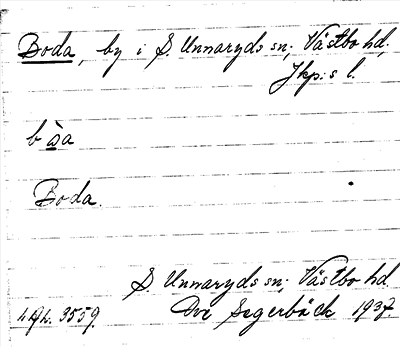 Boda, by i S. Unnaryds sn; Västbo hd,
Jkp:s l.
Boda.
S. Unnaryds sn; Västbo hd
Ove Segerbäck 1937.
3559.